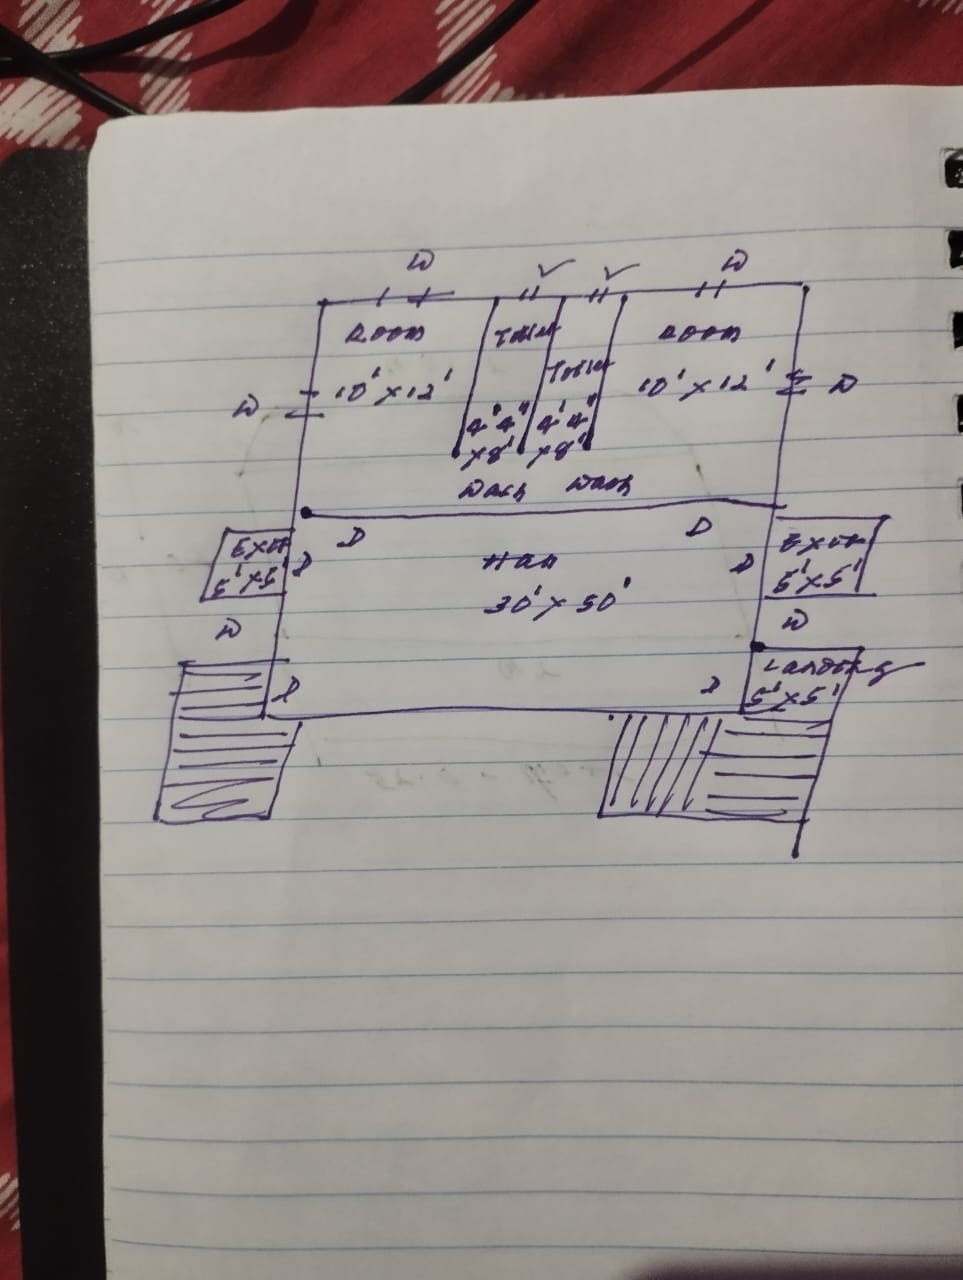 W
V V
W
Room
Toilet
Room
Toilet
10' x 12'
10' x 12'
W
W
4'4"
x8'
4'4"
x8'
Wash Wash
D
D
Exit
5'x5'
D
Hall
30' x 50'
D
Exit
5'x5'
W
W
D
D
Landing
5'x5'